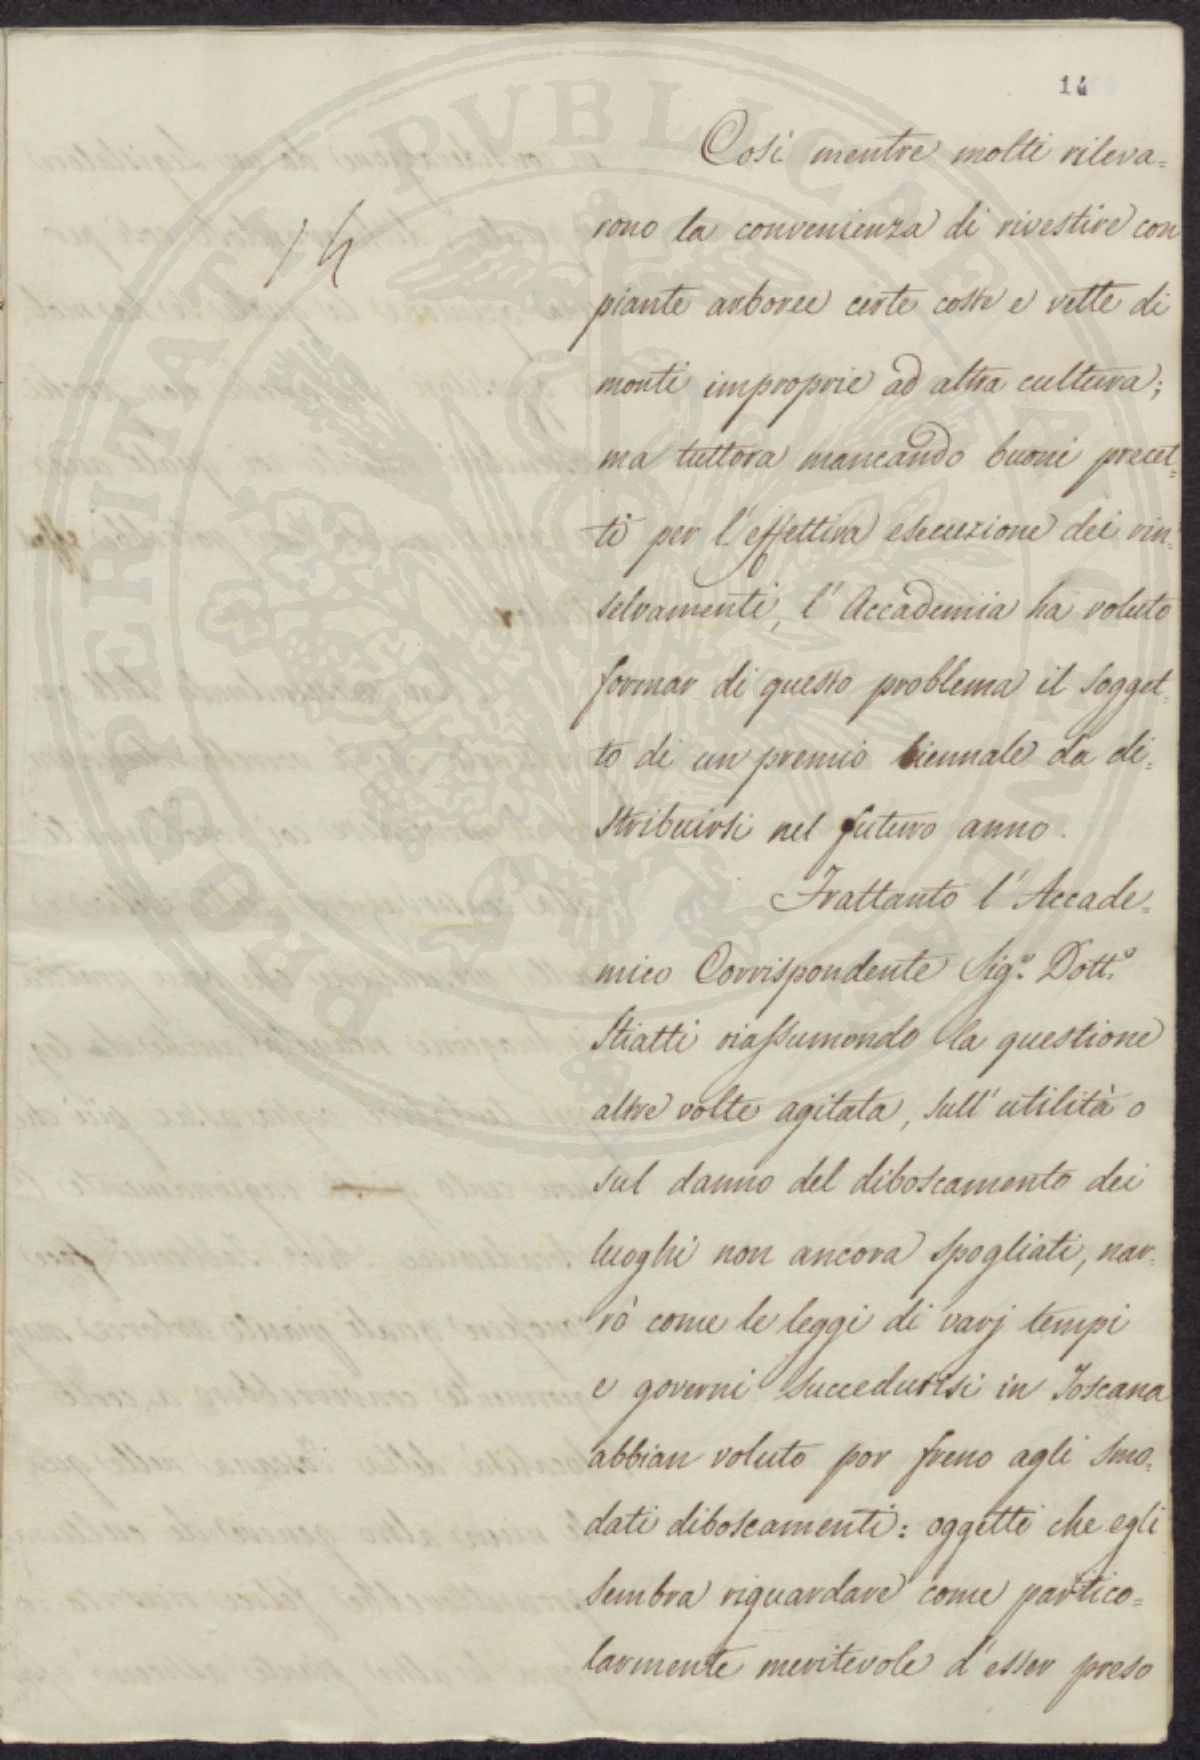 14
PROSPERITATI PUBLICAE AUGENDAE
14
Così mentre molti rileva=
rono la convenienza di rivestire con
piante arboree certe coste e vette di
monti improprie ad altra cultura;
ma tuttora mancando buoni precet=
ti per l'effettiva esecuzione dei rin=
selvamenti, l'Accademia ha voluto
formar di questo problema il sogget=
to di un premio biennale da di=
stribuirsi nel futuro anno.
Frattanto l'Accade=
mico Corrispondente Sig.º Dott.º
Stiatti riassumendo la questione
altre volte agitata, sull'utilità o
sul danno del diboscamento dei
luoghi non ancora spogliati, nar=
rò come le leggi di varj tempi
e governi succedutisi in Toscana
abbian voluto por freno agli smo=
dati diboscamenti: oggetti che egli
sembra riguardare come partico=
larmente meritevole d'esser preso